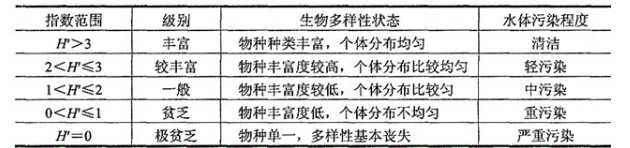 指数范围 级别 生物多样性状态 水体污染程度
H'>3 丰富 物种种类丰富，个体分布均匀 清洁
2<H'≤3 较丰富 物种丰富度较高，个体分布比较均匀 轻污染
1<H'≤2 一般 物种丰富度较低，个体分布比较匀 中污染
0<H'≤1 贫乏 物种丰富度低，个体分布不均匀 重污染
H'=0 极贫乏 物种单一，多样性基本丧失 严重污染